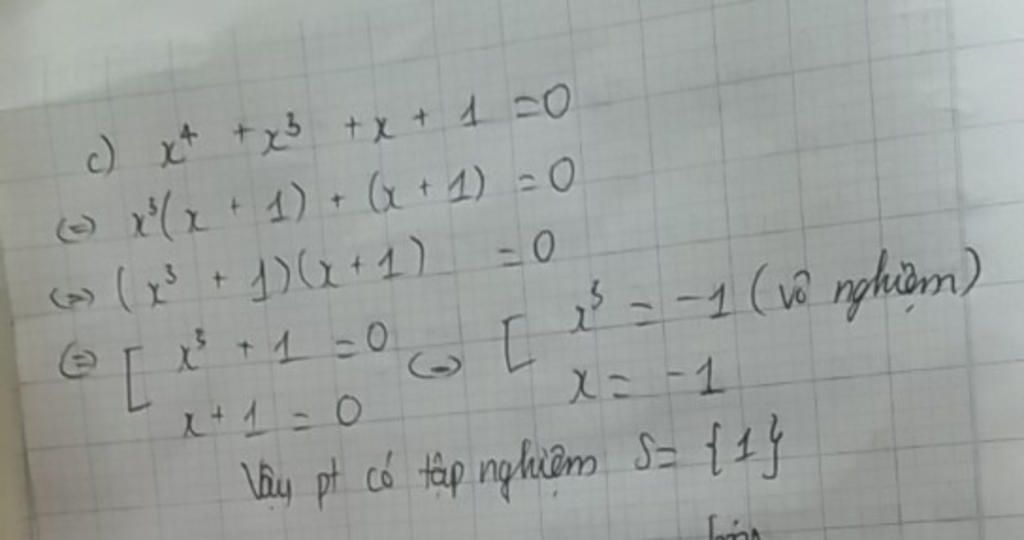 c) x⁴ + x³ + x + 1 = 0
(=) x³(x + 1) + (x + 1) = 0
(=) (x³ + 1)(x + 1) = 0
(=) [ x³ + 1 = 0 (=) [ x³ = -1 (vô nghiệm)
x + 1 = 0 x = -1
Vậy pt có tập nghiệm S = {1}